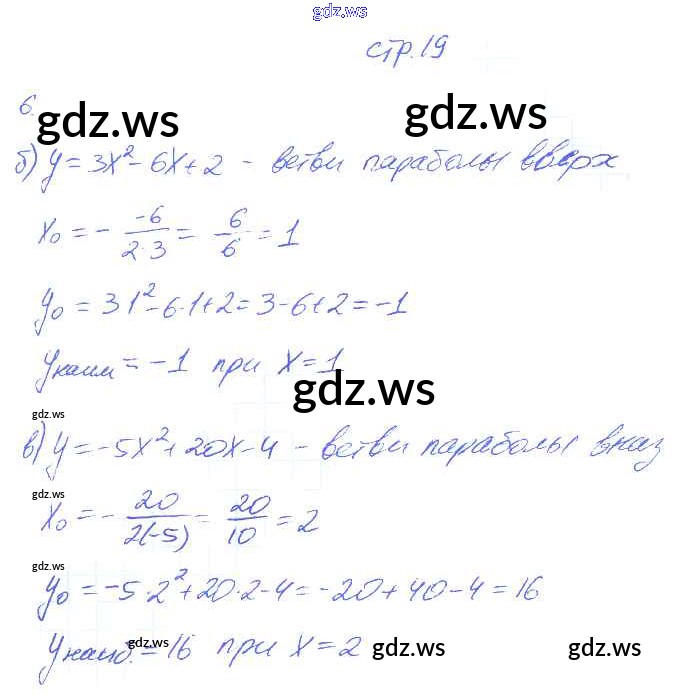 gdz.ws
стр.19
6.
gdz.ws gdz.ws
б) y = 3x² - 6x + 2 - ветви параболы вверх
x₀ = - -6/2·3 = 6/6 = 1
y₀ = 3·1² - 6·1 + 2 = 3 - 6 + 2 = -1
yнаим = -1 при x = 1
gdz.ws
gdz.ws
в) y = -5x² + 20x - 4 - ветви параболы вниз
gdz.ws
x₀ = - 20/2(-5) = 20/10 = 2
gdz.ws
y₀ = -5·2² + 20·2 - 4 = -20 + 40 - 4 = 16
yнаиб. = 16 при x = 2
gdz.ws gdz.ws gdz.ws